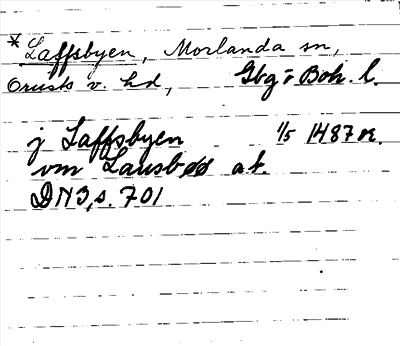 * Laffsbyen, Morlanda sn,
Orusts v. hd, Gbg o Boh. l.
j Laffsbyen 1/5 1487 or.
vm Lausbøø a.b.
DN3, s. 701